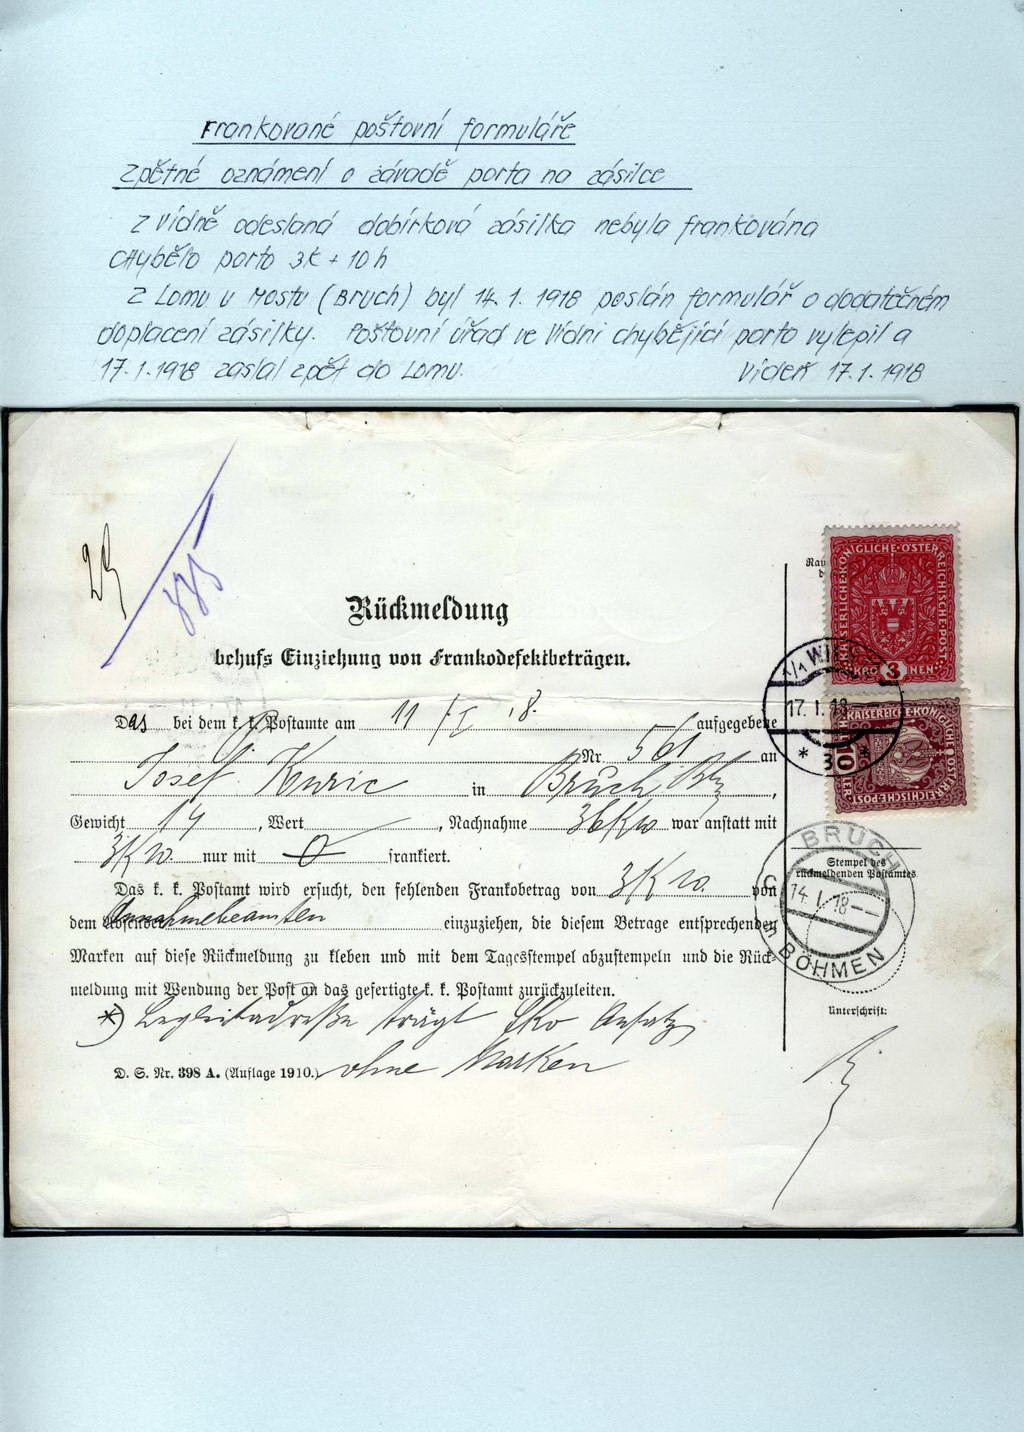 Frankované poštovní formuláře
Zpětné oznámení o závadě porta na zásilce
Z Vídně odeslaná dobírková zásilka nebyla frankována
chybělo porto 3K + 10h
Z Lomu u Mostu (Bruch) byl 14.1.1918 poslán formulář o dodatečném
doplacení zásilky. Poštovní úřad ve Vídni chybějící porto vylepil a
17.1.1918 zaslal zpět do Lomu. Vídeň 17.1.1918
KAISERLICHE·KÖNIGLICHE·ÖSTERREICHISCHE·POST
3
KRONEN
Rückmeldung
behufs Einziehung von Frankodefektbeträgen.
WIEN
17.I.18
* 3 *
KAISERLICHE·KÖNIGLICHE ÖSTERREICHISCHE·POST
10 HELLER
Das bei dem k. k. Postamte am 11/I 18. aufgegebene
Nr. 561 an
Josef Kuric in Bruch
Gewicht 14, Wert, Nachnahme 36K10 war anstatt mit
3K10. nur mit 0 frankiert.
BRUCH
14.I.18
BÖHMEN
Stempel des
rückmeldenden Postamtes
Das k. k. Postamt wird ersucht, den fehlenden Frankobetrag von 3K10. von
dem Annahmebeamten einzuziehen, die diesem Betrage entsprechenden
Marken auf diese Rückmeldung zu kleben und mit dem Tagesstempel abzustempeln und die Rück-
meldung mit Wendung der Post an das gefertigte k. k. Postamt zurückzuleiten.
Unterschrift:
*) Begleitadresse trägt Ansatz
D. S. Nr. 398 A. (Auflage 1910.) ohne Marken